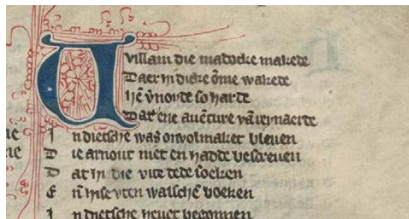 Willam die madocke makete
Daer hi dicke ōme wakete
hē v'noyde so harde
Dat die auēture vā reinaerde
In dietsche was onvolmaket bleuen
Die arnout niet en hadde bescreuen
Dat hi die vite dede soeken
Eñ hise vten walschē boeken
In dietsche heuet begonnen